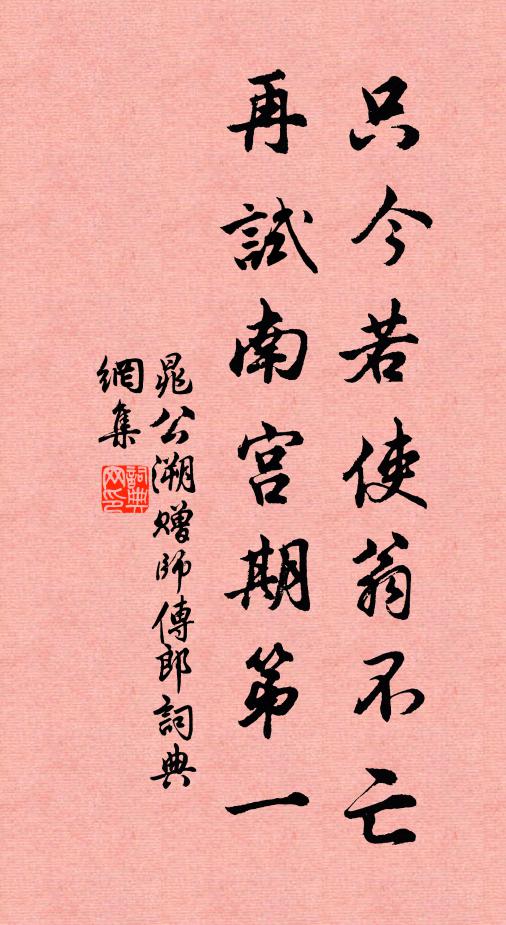 只今若使翁不亡
再試南宮期第一
晁公溯贈師傅郎詞典
網集
詞典
网印